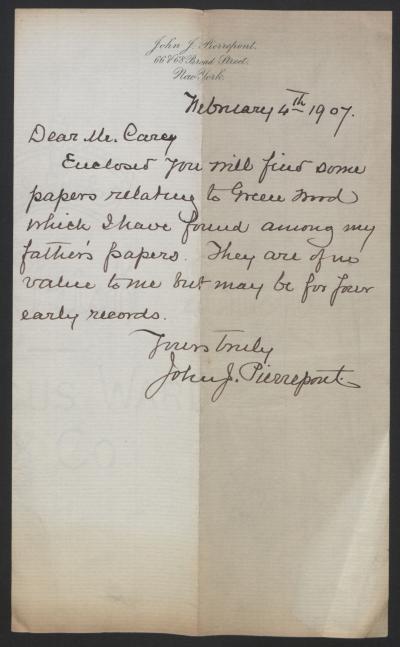 John J. Pierrepont.
66 & 68 Broad Street.
New York.
February 4th 1907.
Dear Mr. Carey
Enclosed you will find some
papers relating to Green Wood
which I have found among my
father's papers. They are of no
value to me but may be for your
early records.
Yours truly
John J. Pierrepont.